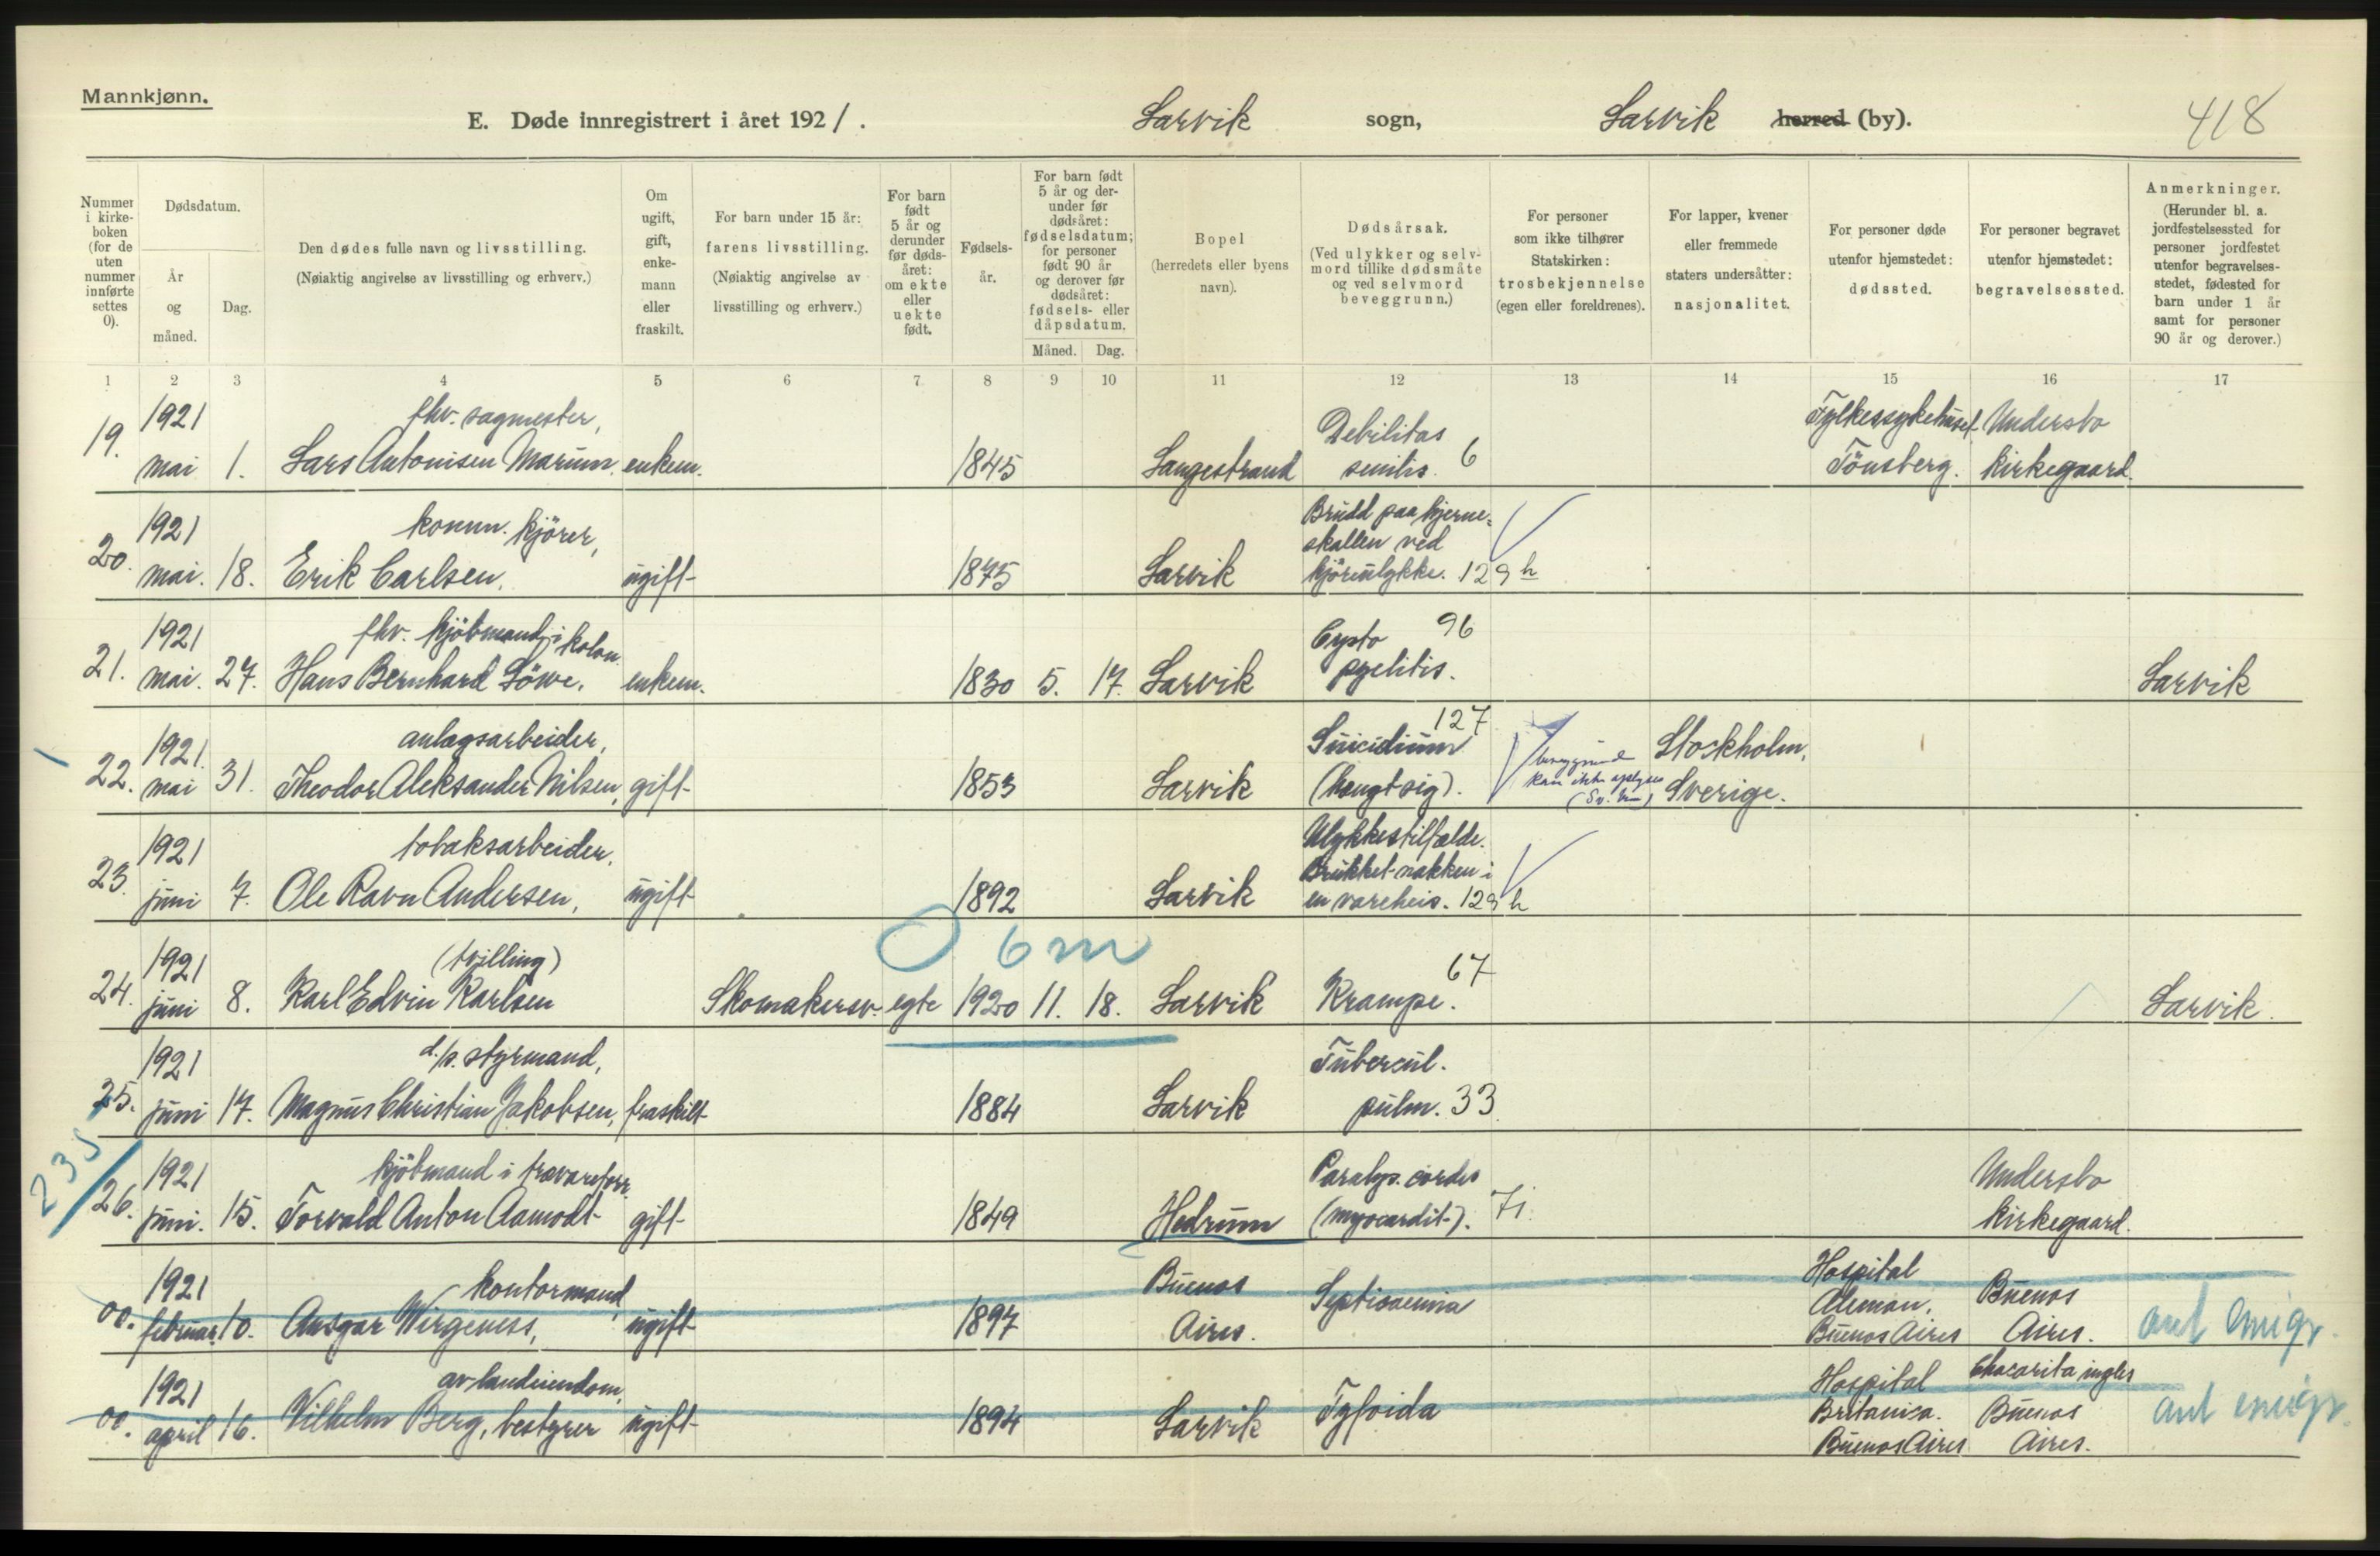 Mannkjønn.
E. Døde innregistrert i året 1921. Larvik sogn, Larvik herred (by). 418
Nummer i kirke- boken (for de uten nummer innførte settes 0).
Dødsdatum.
År og måned.
Dag.
Den dødes fulle navn og livsstilling.
(Nøiaktig angivelse av livsstilling og erhverv.)
Om ugift, gift, enke- mann eller fraskilt.
For barn under 15 år: farens livsstilling.
(Nøiaktig angivelse av livsstilling og erhverv.)
For barn født 5 år og derunder før døds- året: om ekte eller uekte født.
Fødsels- år.
For barn født 5 år og der- under før dødsåret: fødselsdatum; for personer født 90 år og derover før dødsåret: fødsels- eller dåpsdatum.
Måned. Dag.
Bopel
(herredets eller byens navn).
Dødsårsak.
(Ved ulykker og selv- mord tillike dødsmåte og ved selvmord beveggrunn.)
For personer som ikke tilhører Statskirken: trosbekjennelse (egen eller foreldrenes).
For lapper, kvener eller fremmede staters undersåtter: nasjonalitet.
For personer døde utenfor hjemstedet: dødssted.
For personer begravet utenfor hjemstedet: begravelsessted.
Anmerkninger.
(Herunder bl. a. jordfestelsessted for personer jordfestet utenfor begravelses- stedet, fødested for barn under 1 år samt for personer 90 år og derover.)
1 2 3 4 5 6 7 8 9 10 11 12 13 14 15 16 17
1921 fhv. sagmester, Debilitas Fylkessykehuset Undersbo
19. mai 1. Lars Antonisen Marum, enkem. 1845 Langestrand senilis. 6 Tönsberg. kirkegaard.
1921 komm. kjörer, Brudd paa hjerne-
skallen ved
20. mai. 18. Erik Carlsen, ugift 1875 Larvik kjöreulykke. 129 h
1921 fhv. kjöbmand i kolon. Cysto 96
21. mai. 27. Hans Bernhard Löwe, enkem. 1830 5. 17. Larvik pyelitis. Larvik
1921 anlægsarbeider, Suicidium 127 Stockholm,
beveggrund
22. mai 31. Theodor Aleksander Nilsen, gift 1853 Larvik (hængt sig). kan ikke oplyses Sverige.
1921 tobaksarbeider, Ulykkestilfælde.
Brukket nakken i
23. juni 7. Ole Ravn Andersen, ugift 1892 Larvik en vareheis. 129 h
0 6 m
1921 (tvilling) 67
24. juni 8. Karl Edvin Karlsen Skomakersv. egte 1920 11. 18. Larvik Krampe. Larvik.
1921 d./s. styrmand, Tubercul.
25. juni 17. Magnus Christian Jakobsen, fraskilt 1884 Larvik pulm. 33
235
1921 kjöbmand i trævareforr. Paralys. cordis Undersbo
26. juni. 15. Torvald Anton Aamodt gift 1849 Hedrum (myocardit.). 71. kirkegaard.
1921 kontormand, Buenos Septicaemia Hospital Buenos
Aleman,
00. februar. 10. Ansgar Wirgeness, ugift 1897 Aires. Buenos Aires Aires. ant emigr.
1921 av landeiendom, Hospital Chacarita ingles
00. april 16. Vilhelm Berg, bestyrer ugift 1894 Larvik Tyfoida Britanica. Buenos ant emigr.
Buenos Aires Aires.